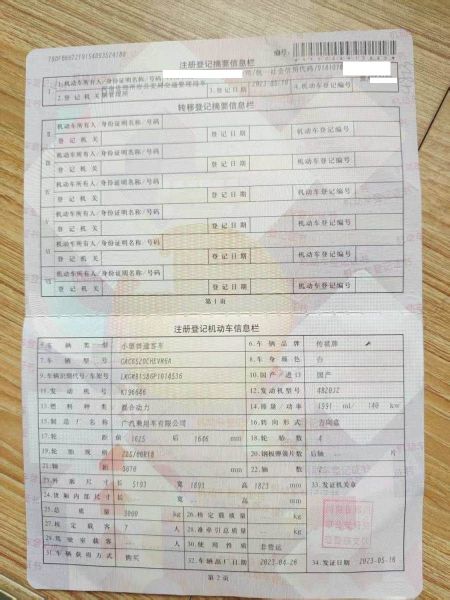 注册登记摘要信息栏
编号:
1.机动车所有人/身份证明名称/号码
2.登记机关
登记日期 2023-05-16 4.机动车登记编号
转移登记摘要信息栏
Ⅱ 机动车所有人/身份证明名称/号码
登记机关 登记日期 机动车登记编号
Ⅲ 机动车所有人/身份证明名称/号码
登记机关 登记日期 机动车登记编号
Ⅳ 机动车所有人/身份证明名称/号码
登记机关 登记日期 机动车登记编号
Ⅴ 机动车所有人/身份证明名称/号码
登记机关 登记日期 机动车登记编号
Ⅵ 机动车所有人/身份证明名称/号码
登记机关 登记日期 机动车登记编号
Ⅶ 机动车所有人/身份证明名称/号码
登记机关 登记日期 机动车登记编号
第1页
注册登记机动车信息栏
5.车辆类型 小型普通客车 6.车辆品牌 传祺牌
7.车辆型号 GAC6520CHEVM6A 8.车身颜色 白
9.车辆识别代号/车架号 10.国产/进口 国产
11.发动机号 K196646 12.发动机型号 4B20J2
13.燃料种类 混合动力 14.排量/功率 1991 ml/ 140 kw
15.制造厂名称 广汽乘用车有限公司 16.转向形式 方向盘
17.轮距 前 1625 后 1646 mm 18.轮胎数 4
19.轮胎规格 225/60R18 20.钢板弹簧片数 后轴 片
21.轴距 3070 mm 22.轴数 2
23.外廓尺寸 长 5193 宽 1893 高 1823 mm 33.发证机关章
24.货厢内部尺寸 长 宽 高 mm
25.总质量 3000 kg 26.核定载质量 kg
27.核定载客 7 人 28.准牵引总质量 kg
29.驾驶室载客 人 30.使用性质 非营运
31.车辆获得方式 购买 32.车辆出厂日期 2023-04-26 34.发证日期 2023-05-16
第2页